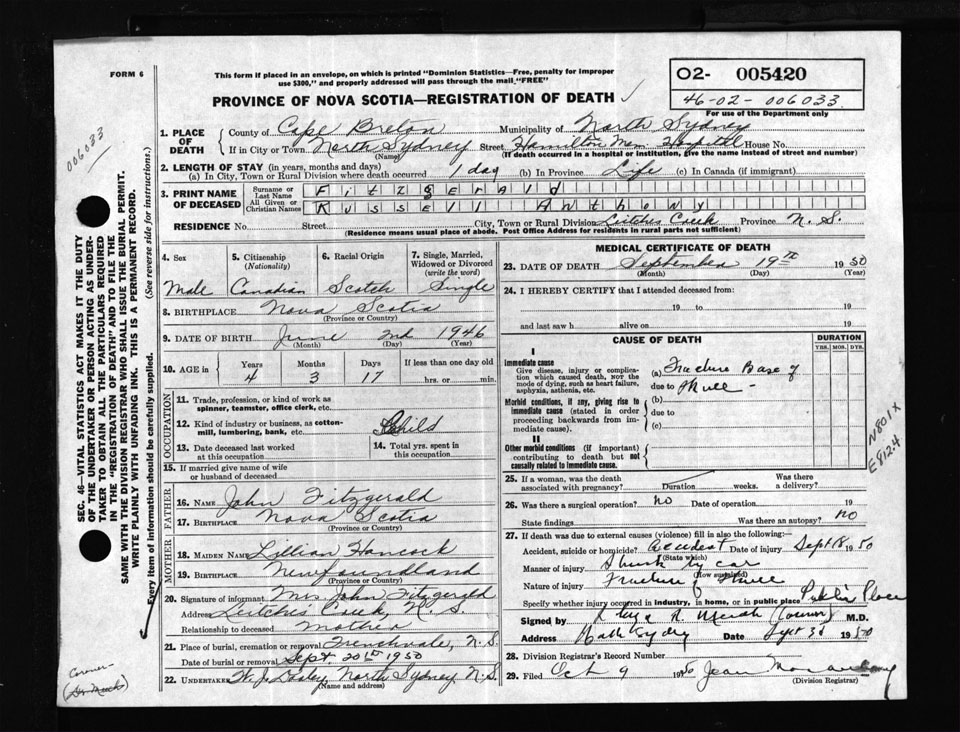 FORM 6
This form if placed in an envelope, on which is printed "Dominion Statistics—Free, penalty for improper
use $300," and properly addressed will pass through the mail "FREE"
O2- 005420
46-02-006033
For use of the Department only
PROVINCE OF NOVA SCOTIA—REGISTRATION OF DEATH
006033
SEC. 46—VITAL STATISTICS ACT MAKES IT THE DUTY
OF THE UNDERTAKER OR PERSON ACTING AS UNDER-
TAKER TO OBTAIN ALL THE PARTICULARS REQUIRED
IN THE "REGISTRATION OF DEATH" AND TO FILE THE
SAME WITH THE DIVISION REGISTRAR WHO SHALL ISSUE THE BURIAL PERMIT.
WRITE PLAINLY WITH UNFADING INK. THIS IS A PERMANENT RECORD.
Every item of information should be carefully supplied. (See reverse side for instructions.)
1. PLACE OF DEATH
County of Cape Breton Municipality of North Sydney
If in City or Town North Sydney Street Hamilton Mem Hospital House No.
(Name) (If death occurred in a hospital or institution, give the name instead of street and number)
2. LENGTH OF STAY (in years, months and days)
(a) In City, Town or Rural Division where death occurred 1 day (b) In Province Life (c) In Canada (if immigrant)
3. PRINT NAME OF DECEASED
Surname or Last Name Fitzgerald
All Given or Christian Names Russell Anthony
RESIDENCE No. Street City, Town or Rural Division Leitches Creek Province N.S.
(Residence means usual place of abode. Post Office Address for residents in rural parts not sufficient)
4. Sex Male
5. Citizenship (Nationality) Canadian
6. Racial Origin Scotch
7. Single, Married, Widowed or Divorced (write the word) Single
8. BIRTHPLACE Nova Scotia
(Province or Country)
9. DATE OF BIRTH June 2nd 1946
(Month) (Day) (Year)
10. AGE in Years 4 Months 3 Days 17 If less than one day old hrs. or min.
OCCUPATION
11. Trade, profession, or kind of work as spinner, teamster, office clerk, etc.
12. Kind of industry or business, as cotton-mill, lumbering, bank, etc. Child
13. Date deceased last worked at this occupation
14. Total yrs. spent in this occupation
15. If married give name of wife or husband of deceased
FATHER
16. NAME John Fitzgerald
17. BIRTHPLACE Nova Scotia
(Province or Country)
MOTHER
18. MAIDEN NAME Lillian Hancock
19. BIRTHPLACE Newfoundland
(Province or Country)
20. Signature of informant Mrs. John Fitzgerald
Address Leitches Creek, N.S.
Relationship to deceased Mother
21. Place of burial, cremation or removal Frenchvale, N.S.
Date of burial or removal Sept. 20th 1950
22. UNDERTAKER W.J. Dooley, North Sydney N.S.
(Name and address)
Coroner
MEDICAL CERTIFICATE OF DEATH
23. DATE OF DEATH September 19th 1950
(Month) (Day) (Year)
24. I HEREBY CERTIFY that I attended deceased from:
19 to 19
and last saw h alive on 19
CAUSE OF DEATH
DURATION
YRS. MOS. DYS.
I
Immediate cause
Give disease, injury or complication which caused death, NOT the mode of dying, such as heart failure, asphyxia, asthenia, etc.
(a) Fracture Base of
due to Skull -
Morbid conditions, if any, giving rise to immediate cause (stated in order proceeding backwards from immediate cause).
(b)
due to
(c)
II
Other morbid conditions (if important) contributing to death but not causally related to immediate cause.
N801X
E8124
25. If a woman, was the death associated with pregnancy? Duration weeks. Was there a delivery?
26. Was there a surgical operation? No Date of operation 19
State findings Was there an autopsy? No
27. If death was due to external causes (violence) fill in also the following:—
Accident, suicide or homicide? Accident Date of injury Sept 18 1950
(State which)
Manner of injury Struck by car
(How sustained)
Nature of injury Fracture of Skull
Specify whether injury occurred in industry, in home, or in public place Public Place
Signed by M.D.
Address North Sydney Date Sept 1950
28. Division Registrar's Record Number
29. Filed Oct 9 1950 Jean
(Division Registrar)